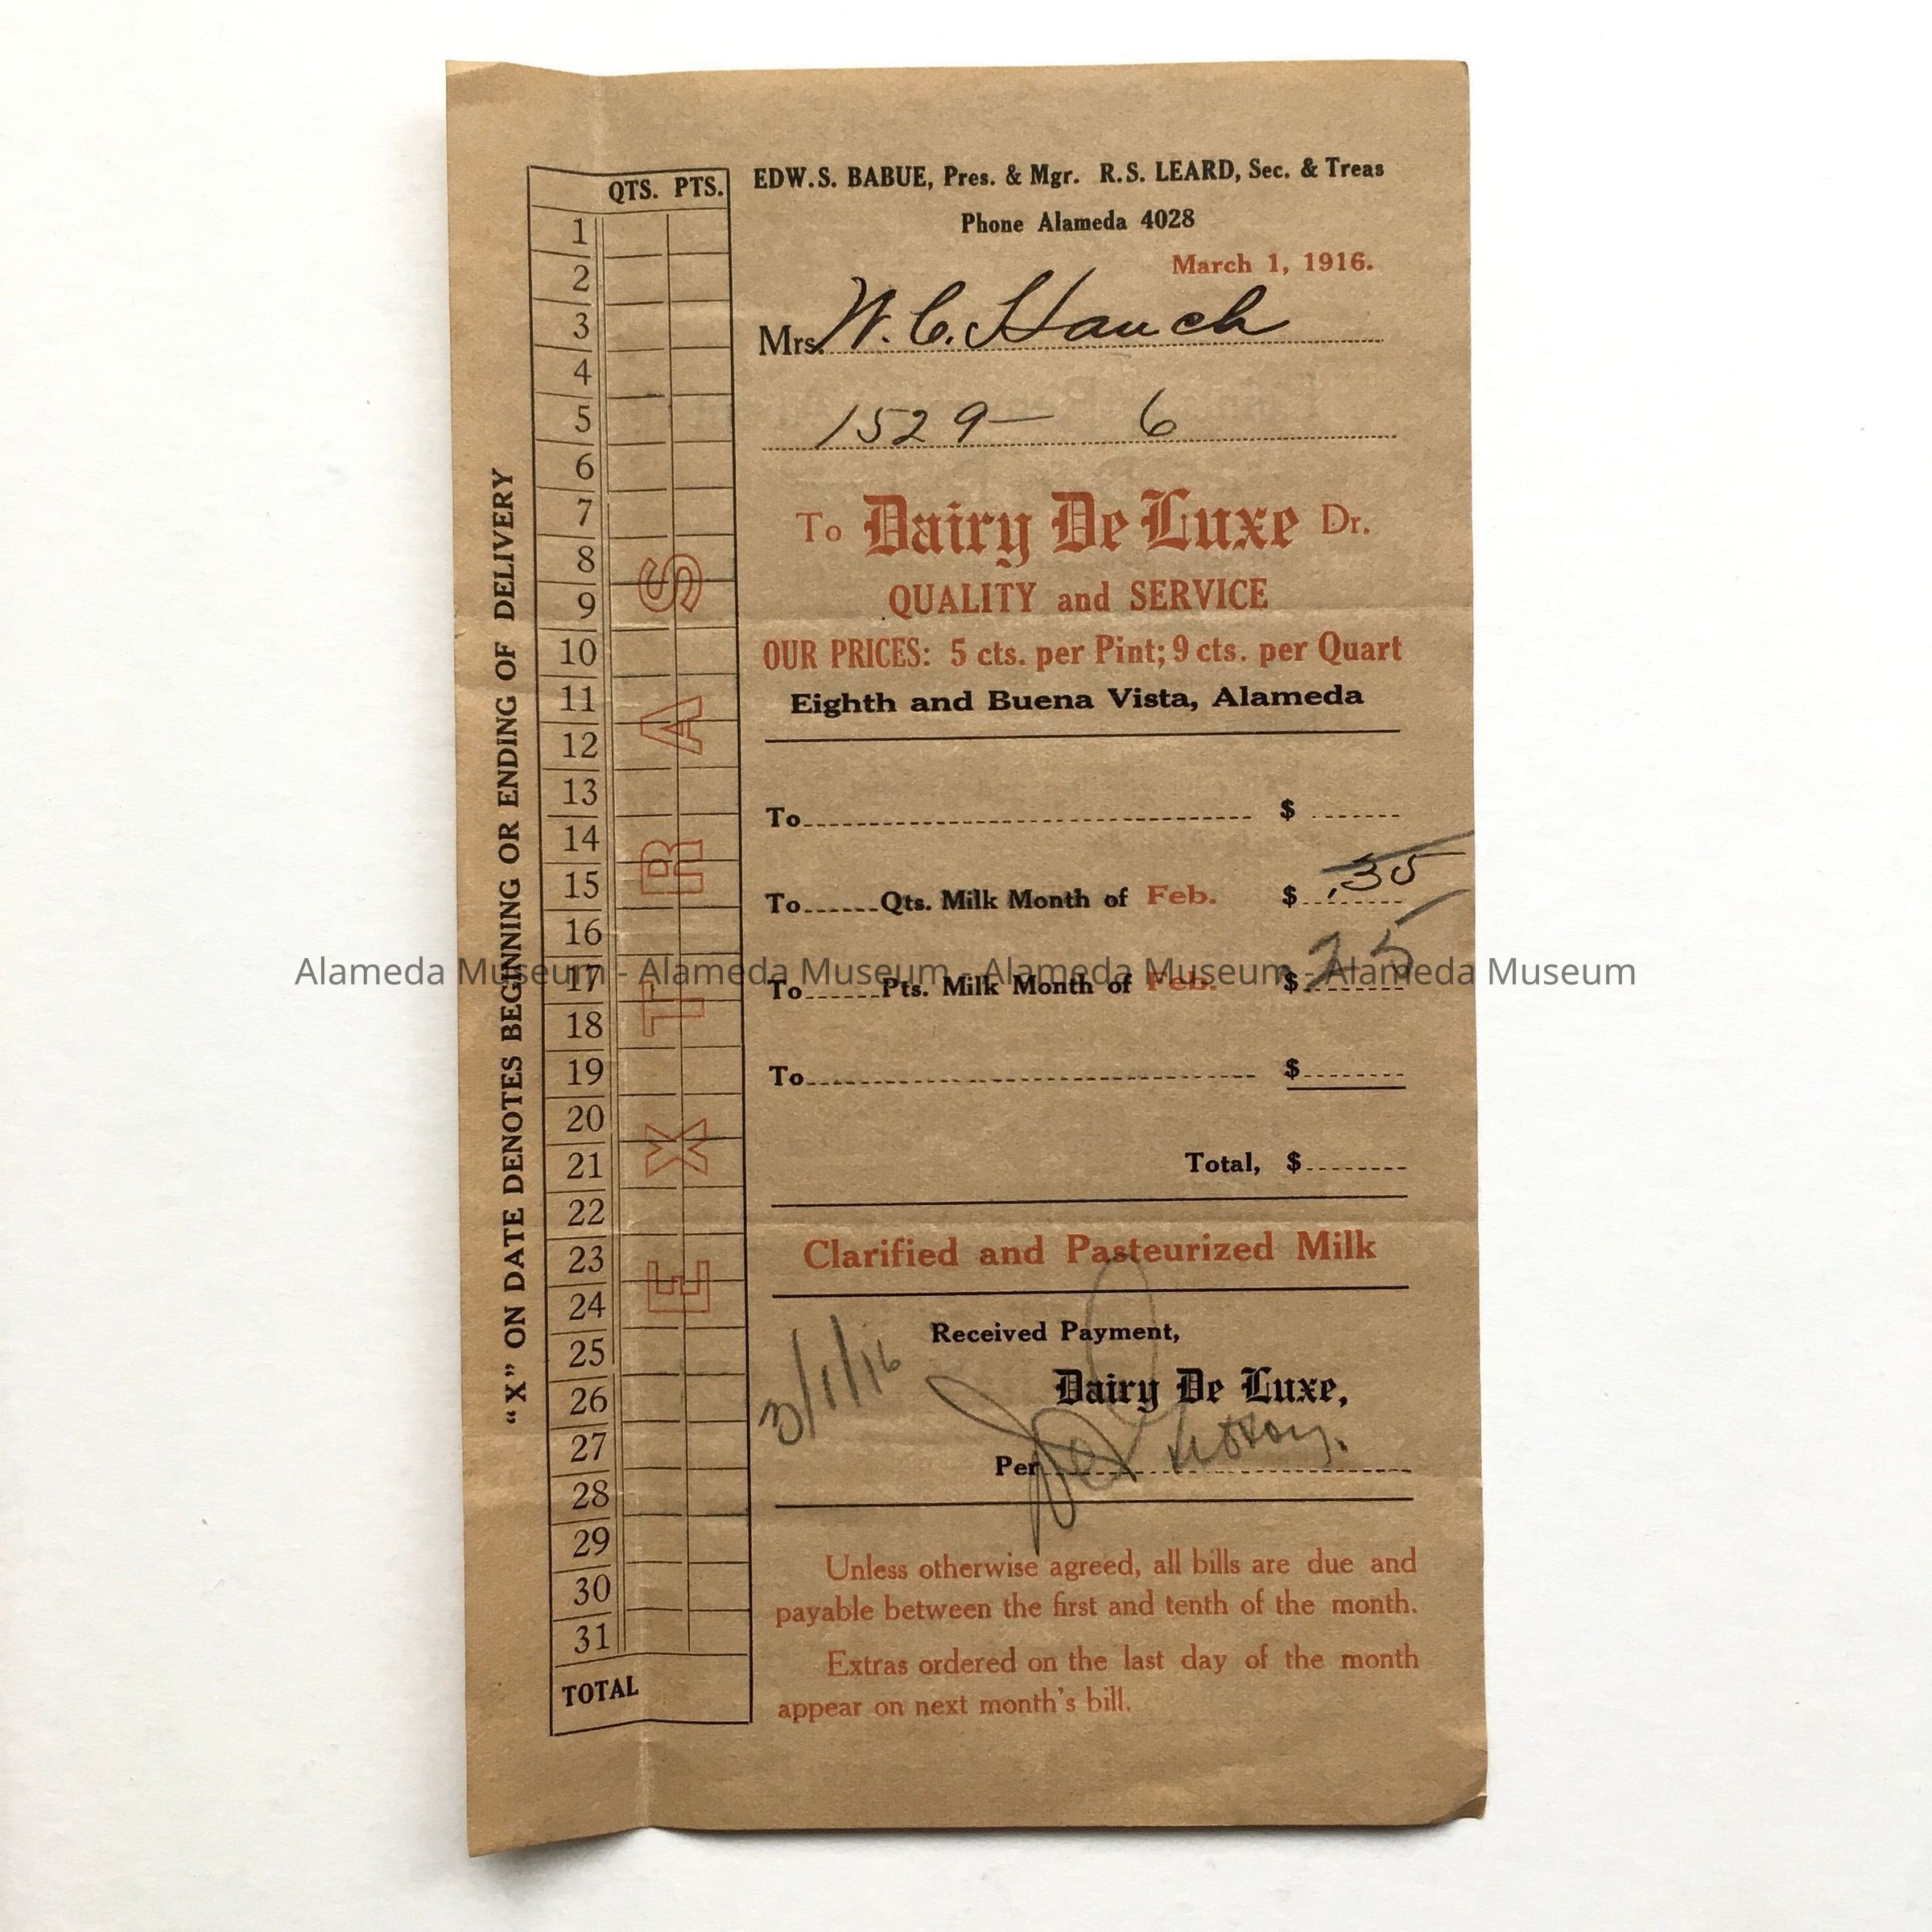 EDW. S. BABUE, Pres. & Mgr. R. S. LEARD, Sec. & Treas
Phone Alameda 4028
March 1, 1916.
Mrs. W. C. Hauch
1529— 6
To Dairy De Luxe Dr.
QUALITY and SERVICE
OUR PRICES: 5 cts. per Pint; 9 cts. per Quart
Eighth and Buena Vista, Alameda
To $
To Qts. Milk Month of Feb. $ .35
To Pts. Milk Month of Feb. $ 25
To $
Total, $
Clarified and Pasteurized Milk
Received Payment,
3/1/16
Dairy De Luxe,
Per
Unless otherwise agreed, all bills are due and
payable between the first and tenth of the month.
Extras ordered on the last day of the month
appear on next month's bill.
"X" ON DATE DENOTES BEGINNING OR ENDING OF DELIVERY
QTS. PTS.
1
2
3
4
5
6
7
8
9
10
11
12
13
14
15
16
17
18
19
20
21
22
23
24
25
26
27
28
29
30
31
TOTAL
EXTRAS
Alameda Museum - Alameda Museum - Alameda Museum - Alameda Museum